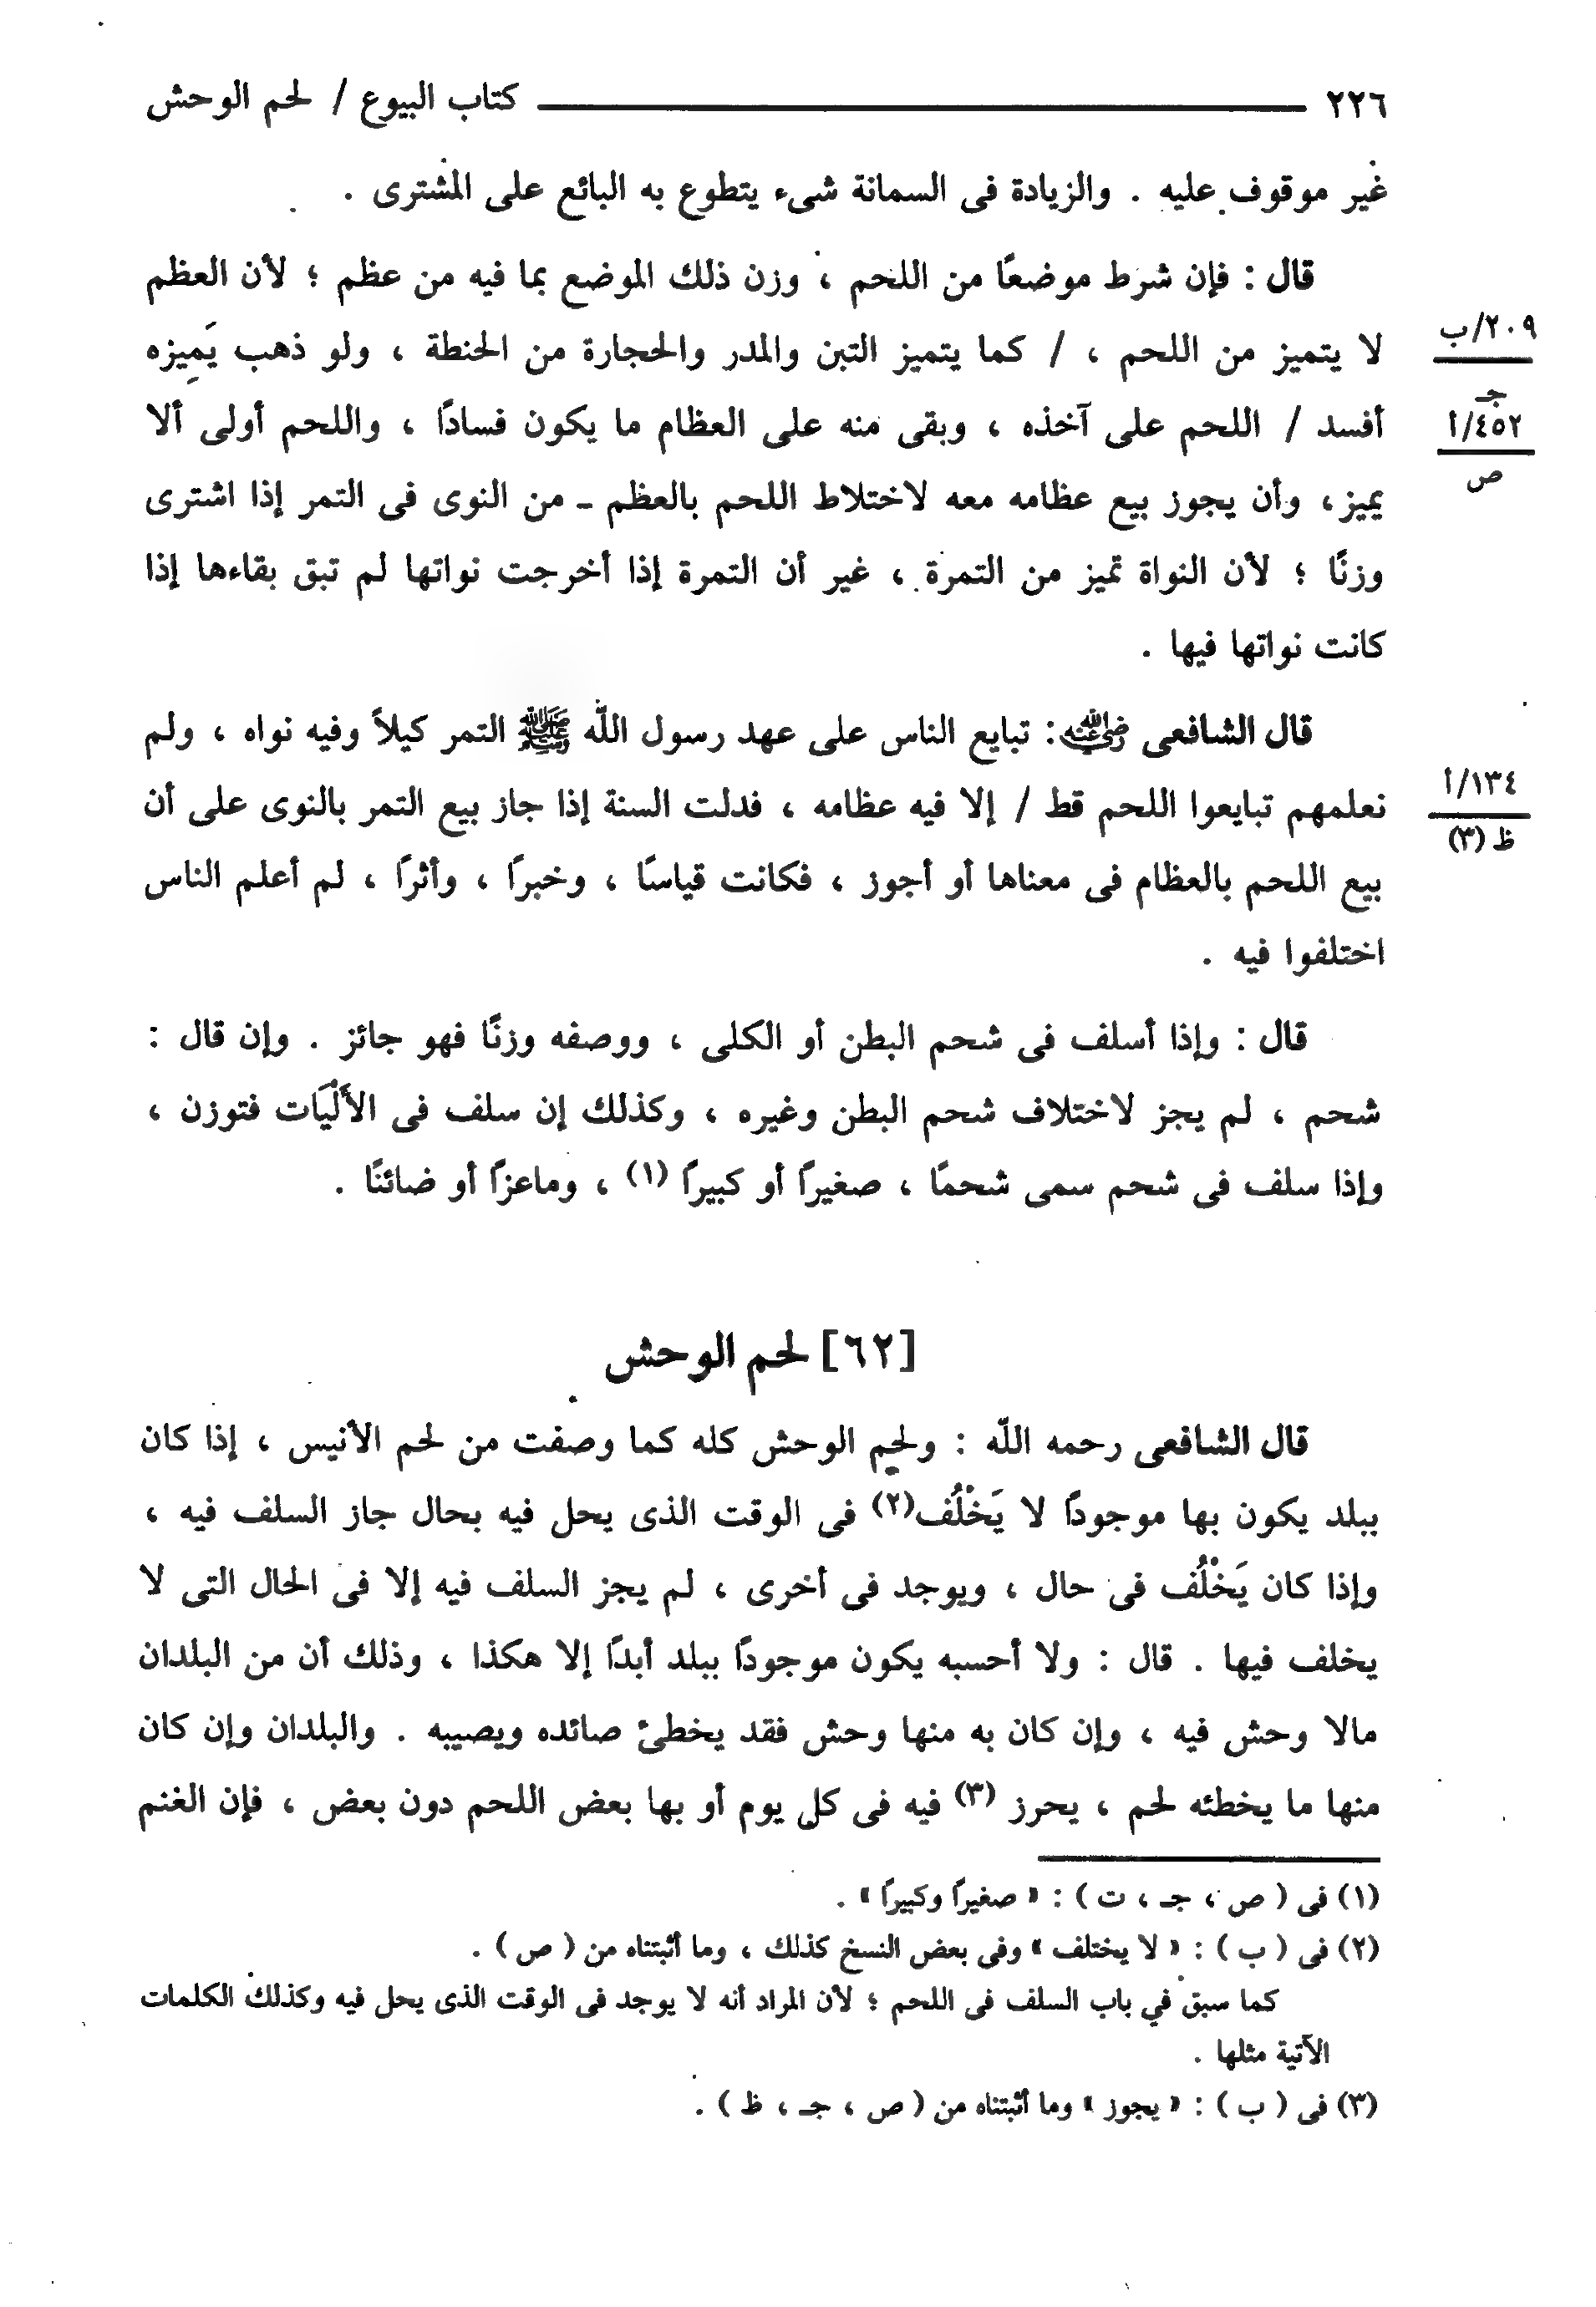 ٢٢٦ كتاب البيوع / لحم الوحش
غير موقوف عليه . والزيادة فى السمانة شىء يتطوع به البائع على المشترى .
قال : فإن شرط موضعًا من اللحم ، وزن ذلك الموضع بما فيه من عظم ؛ لأن العظم
٢٠٩/ب
لا يتميز من اللحم ، / كما يتميز التبن والمدر والحجارة من الحنطة ، ولو ذهب يَمِيزه
جـ
أفسد / اللحم على آخذه ، وبقى منه على العظام ما يكون فسادًا ، واللحم أولى ألا
٤٥٢/أ
ص
يميز، وأن يجوز بيع عظامه معه لاختلاط اللحم بالعظم ـ من النوى فى التمر إذا اشترى
وزنًا ؛ لأن النواة تميز من التمرة ، غير أن التمرة إذا أخرجت نواتها لم تبق بقاءها إذا
كانت نواتها فيها .
قال الشافعى رضي الله عنه : تبايع الناس على عهد رسول اللّه ﷺ التمر كيلاً وفيه نواه ، ولم
١٣٤/أ
نعلمهم تبايعوا اللحم قط / إلا فيه عظامه ، فدلت السنة إذا جاز بيع التمر بالنوى على أن
ظ (٣)
بيع اللحم بالعظام فى معناها أو أجوز ، فكانت قياسًا ، وخبرًا ، وأثرًا ، لم أعلم الناس
اختلفوا فيه .
قال : وإذا أسلف فى شحم البطن أو الكلى ، ووصفه وزنًا فهو جائز . وإن قال :
شحم ، لم يجز لاختلاف شحم البطن وغيره ، وكذلك إن سلف فى الأَلْيَات فتوزن ،
وإذا سلف فى شحم سمى شحمًا ، صغيرًا أو كبيرًا (١) ، وماعزًا أو ضائنًا .
[٦٢] لحم الوحش
قال الشافعى رحمه اللّه : ولحم الوحش كله كما وصفت من لحم الأنيس ، إذا كان
ببلد يكون بها موجودًا لا يَخْلُف(٢) فى الوقت الذى يحل فيه بحال جاز السلف فيه ،
وإذا كان يَخْلُف فى حال ، ويوجد فى أخرى ، لم يجز السلف فيه إلا فى الحال التى لا
يخلف فيها . قال : ولا أحسبه يكون موجودًا ببلد أبدًا إلا هكذا ، وذلك أن من البلدان
مالا وحش فيه ، وإن كان به منها وحش فقد يخطئ صائده ويصيبه . والبلدان وإن كان
منها ما يخطئه لحم ، يحرز (٣) فيه فى كل يوم أو بها بعض اللحم دون بعض ، فإن الغنم
(١) فى ( ص ، جـ ، ت ) : « صغيرًا وكبيرًا » .
(٢) فى ( ب ) : « لا يختلف » وفى بعض النسخ كذلك ، وما أثبتناه من ( ص ) .
كما سبق في باب السلف فى اللحم ؛ لأن المراد أنه لا يوجد فى الوقت الذى يحل فيه وكذلك الكلمات
الآتية مثلها .
(٣) فى ( ب ) : « يجوز » وما أثبتناه من ( ص ، جـ ، ظ ) .